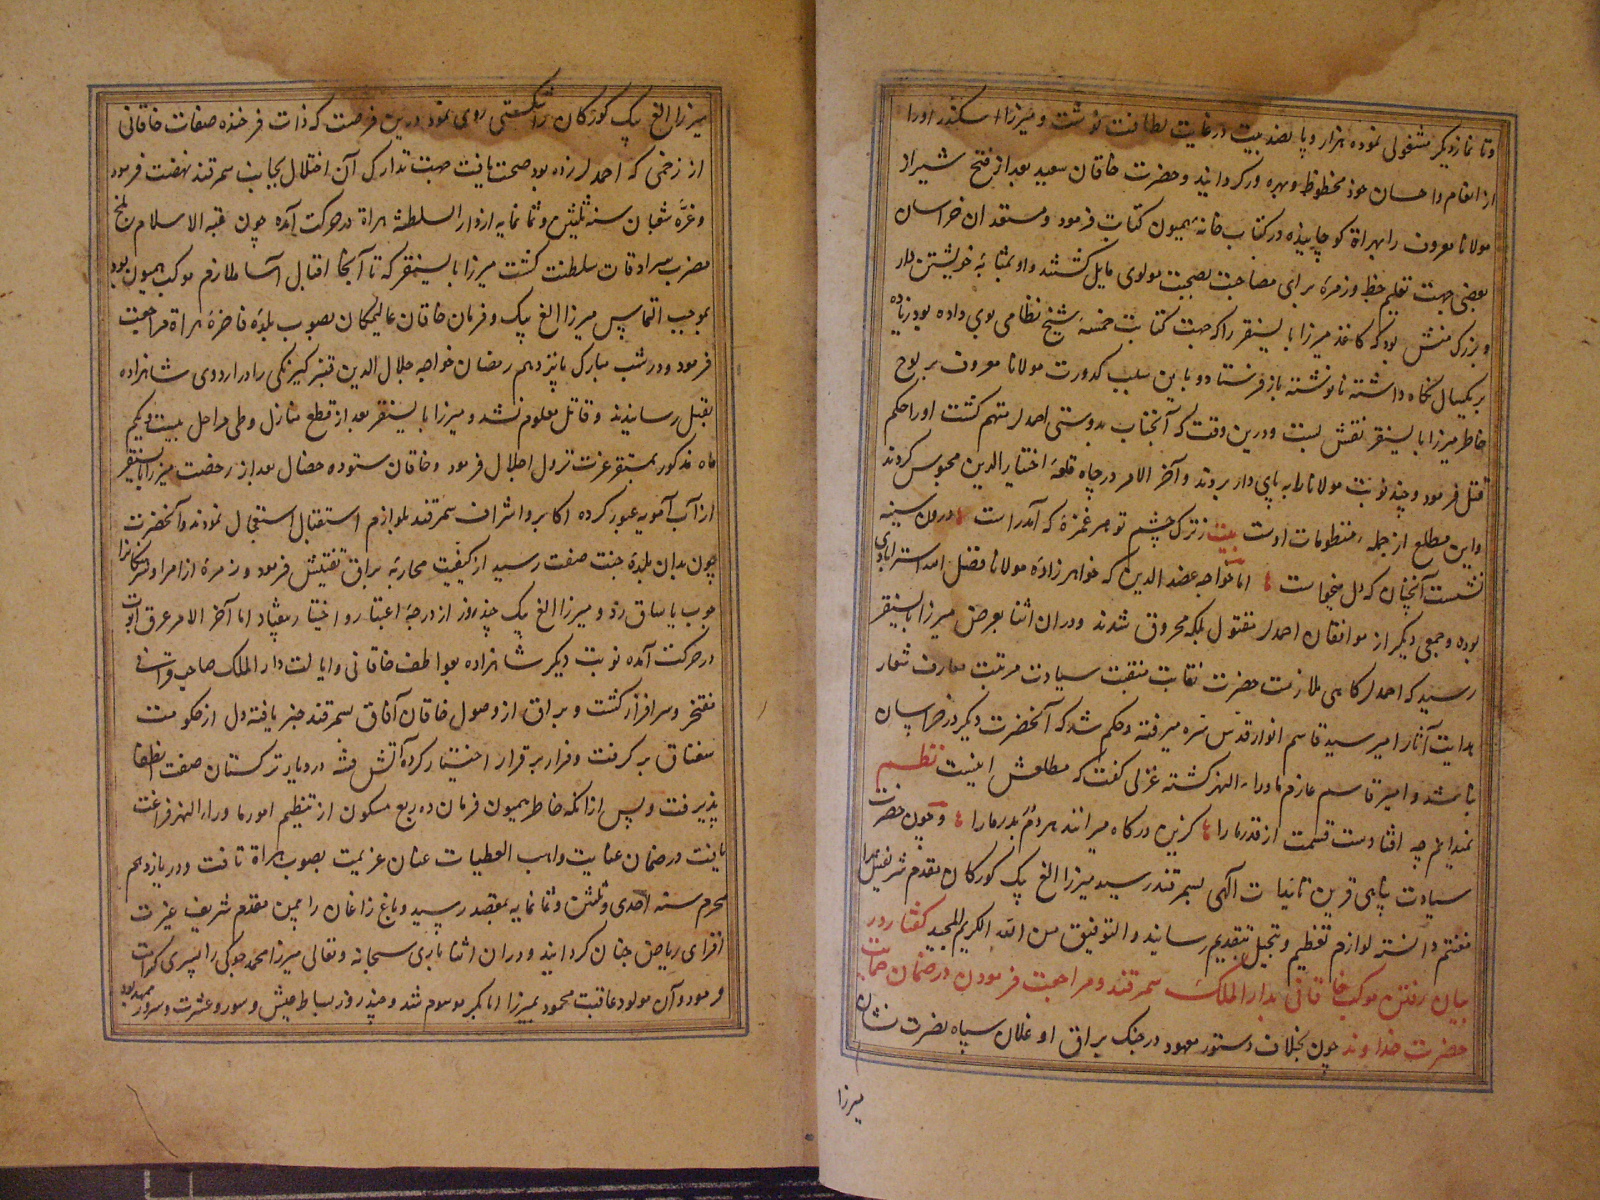 وتا نماز دیگر مشغولی نموده هزار و پانصد بیت در غایت لطافت نوشت و میرزا اسکندر او را
از انعام و احسان خود محظوظ و بهره ور گردانید و حضرت خاقان سعید بعد از فتح شیراز
مولانا معروف را بهراة کوچانیده در کتاب خانهٔ همیون کتابت فرمود و مستعدان خراسان
بعضی جهت تعلیم خط و زمرهٔ برای مصاحبت بصحبت مولوی مایل گشتند و او بمثابهٔ خویشتن دار
و بزرک منش بود که کاغذ میرزا بایسنقر را که جهت کتابت خمسهٔ شیخ نظامی بوی داده بود زیاده
بر یکسال نگاه داشته نانوشته باز فرستاد و باین سبب کدورت مولانا معروف بر لوح
خاطر میرزا بایسنقر نقش بست و درین وقت که آنجناب بدوستی احمد لر متهم کشت او را حکم
قتل فرمود و چند نوبت مولانا را به پای دار بردند و آخر الامر در چاه قلعهٔ اختیار الدین محبوس کردند
و این مطلع از جمله منظومات اوست بیت ز ترک چشم تو هر غمزهٔ که آمد راست درون سینه
نشست آنچنان که دل میخواست اما خواجه عضد الدین که خواهر زادهٔ مولانا فضل الله استرابادی
بوده و جمعی دیگر از موافقان احمد لر مقتول بلکه محروق شدند و در ان اثنا بعرض میرزا بایسنقر
رسید که احمد لر کاهی ملازمت حضرت نقابت منقبت سیادت مرتبت معارف شعار
هدایت آثار امیر سید قاسم انوار قدس سره میرفته و حکم شد که آنحضرت دیگر در خراسان
نباشد و امیر قاسم عازم ماوراء النهر کشته غزلی کفت که مطلعش اینست نظم
نمیدانم چه افتادست قسمت از قدر ما را کزین درکاه میرانند هر دم در بدر ما را و چون حضرت
سیادت پناهی قرین تائیدات آلهی بسمرقند رسید میرزا الغ بیک کورکان مقدم شریفش را
مغتنم دانسته لوازم تعظیم و تبجیل بتقدیم رسانید و التوفیق من الله الکریم المجید کفتار در
بیان رفتن موکب خاقانی بدار الملک سمرقند و مراجعت فرمودن در ضمان حمایت
حضرت خداوند چون بخلاف دستور معهود در جنک براق اوغلان سپاه نصرت نشان
میرزا
میرزا الغ بیک کورکان را شکستی روی نمود درین فرصت که ذات فرخنده صفات خاقانی
از زخمی که احمد لر زده بود صحت یافت جهت تدارک آن اختلال بجانب سمرقند نهضت فرمود
و غرّه شعبان سنه ثلثین و ثمانمایه از دار السلطنهٔ هراة در حرکت آمده چون قبه الاسلام بلخ
مضرب سرادقات سلطنت کشت میرزا بایسنقر که تا آنجا اقبال آسا ملازم موکب همیون بود
بموجب التماس میرزا الغ بیک و فرمان خاقان عالیمکان بصوب بلدهٔ فاخرهٔ هراة مراجعت
فرمود و در شب مبارک پانزدهم رمضان خواجه جلال الدین قنبر کیرنکی را در اردوی شاهزاده
بقتل رسانیدند و قاتل معلوم نشد و میرزا بایسنقر بعد از قطع منازل و طی مراحل بیست و یکم
ماه مذکور بمستقر عزت نزول اجلال فرمود و خاقان ستوده خصال بعد از رخصت میرزا بایسنقر
از آب آمویه عبور کرده اکابر و اشراف سمرقند بلوازم استقبال استعجال نمودند و آنحضرت
چون بدان بلدهٔ جنت صفت رسید از کیفیت محاربهٔ براق تفتیش فرمود و زمرهٔ از امرا و
چوب یاساق زد و میرزا الغ بیک چند روز از درجهٔ اعتبار و اختیار بیفتاد اما آخر الامر عرق ابوت
در حرکت آمده نوبت دیکر شاهزاده بعواطف خاقانی و ایالت دار الملک صاحب قرانی
مفتخر و سرافراز کشت و براق از وصول خاقان آفاق بسمرقند خبر یافته دل از حکومت
سغناق بر کرفت و فرار بر قرار اختیار کرد آتش فتنه در دیار ترکستان صفت انطفا
پذیرفت و پس از انکه خاطر همیون فرمان ده ربع مسکون از تنظیم امور ماوراء النهر فراغت
یافت در ضمان عنایت واهب العطیات عنان عزیمت بصوب هراة تافت و در یازدهم
محرم سنه احدی و ثلثین و ثمانمایه بمقصد رسید و باغ زاغان را بیمن مقدم شریف غیرت
افزای ریاض جنان کردانید و در ان اثنا باری سبحانه و تعالی میرزا محمد جوکی را پسری کرامت
فرمود و آن مولود عاقبت محمود بمیرزا ابابکر موسوم شد و چند روز بساط عیش و سور و عشرت و سرور ممهد بود